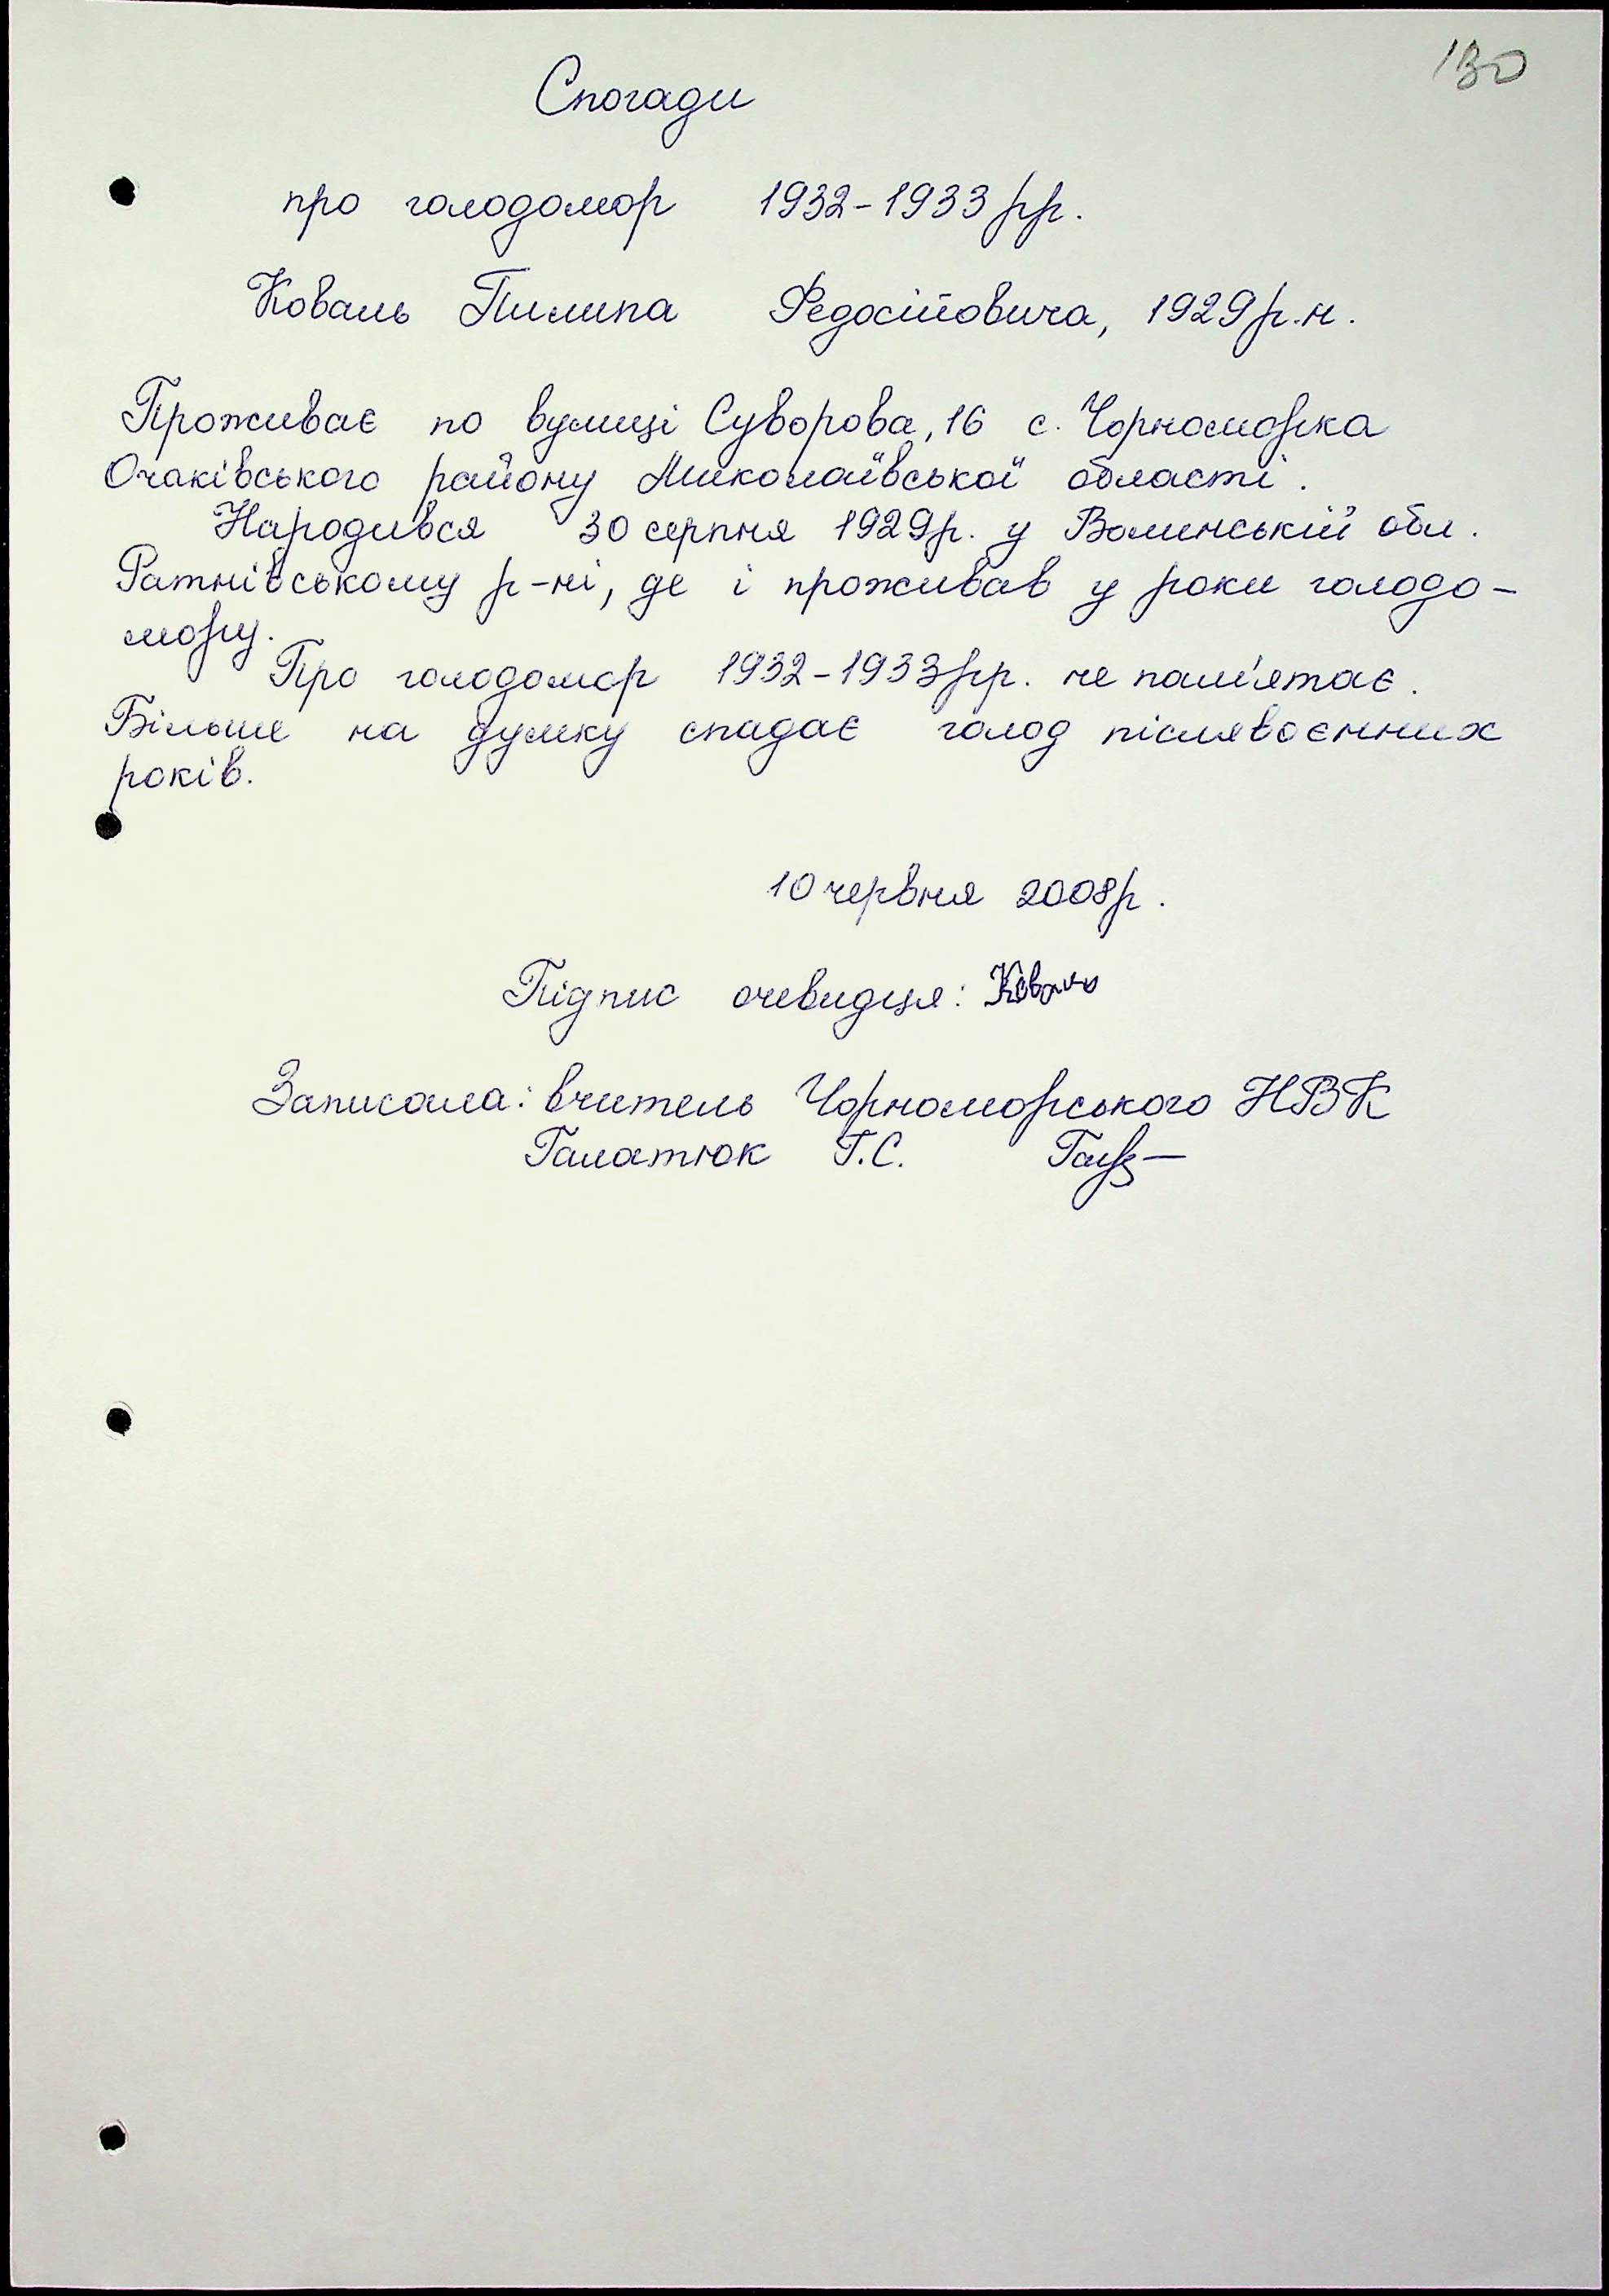 130
Спогади
про голодомор 1932-1933 рр.
Коваль Пилипа Федосійовича, 1929 р.н.
Проживає по вулиці Суворова, 16 с. Чорноморка
Очаківського району Миколаївської області.
Народився 30 серпня 1929р. у Волинській обл.
Ратнівському р-ні, де і проживав у роки голодо-
мору.
Про голодомор 1932-1933рр. не пам'ятає.
Більше на думку спадає голод післявоєнних
років.
10 червня 2008р.
Підпис очевидця: Коваль
Записала: вчитель Чорноморського НВК
Галатюк Г.С.